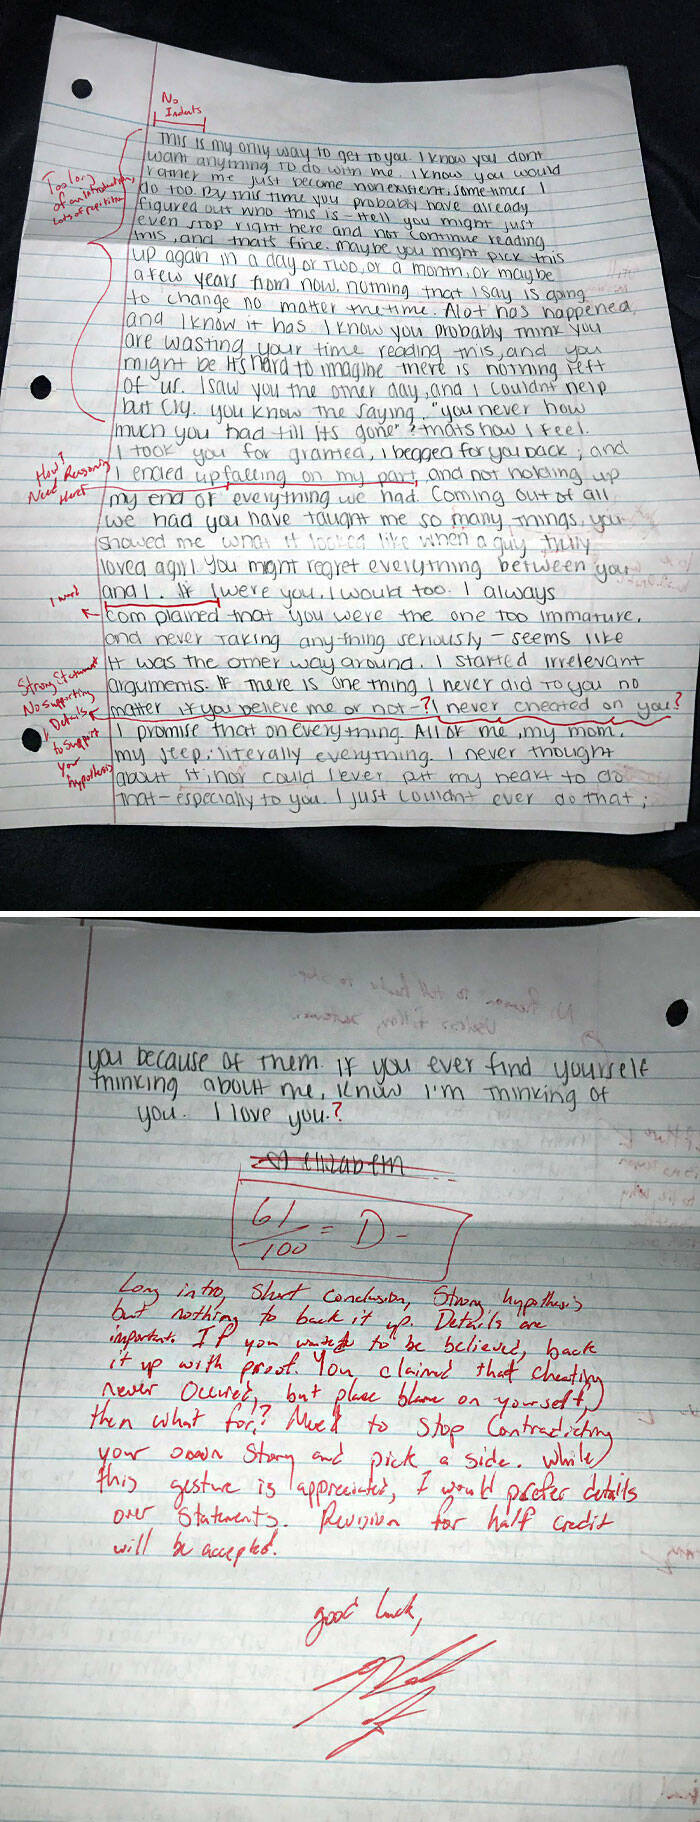 No
Indents
This is my only way to get to you. I know you dont
want anything to do with me. I know you would
rather me just become nonexistent, sometimes I
do too. By this time you probably have already
figured out who this is - Hell you might just
even stop right here and not continue reading
this, and thats fine. maybe you might pick this
up again in a day or two, or a month, or maybe
a few years from now. nothing that I say is going
to change no matter the time. Alot has happened,
and I know it has. I know you probably think you
are wasting your time reading this, and you
might be. It's hard to imagine there is nothing left
of "us". I saw you the other day, and I couldnt help
but cry. you know the saying, "you never how
much you had till its gone"? thats how I feel.
I took you for granted, I begged for you back; and
I ended up falling on my part, and not holding up
my end of everything we had. Coming out of all
we had you have taught me so many things, you
showed me what it looked like when a guy truly
loved a girl. You might regret everything between you
and I. If I were you, I would too. I always
complained that you were the one too immature,
and never taking any-thing seriously - seems like
it was the other way around. I started irrelevant
arguments. If there is one thing I never did to you no
matter if you believe me or not-? I never cheated on you?
I promise that on everything. All of me, my mom,
my jeep; literally everything. I never thought
about it; nor could I ever put my heart to do
that - especially to you. I just couldnt ever do that;
Too long
of an introduction,
Lots of repetition
How?
Need Reasoning
Here!
1 word
Strong Statement
No supporting
Details
to support
your
hypothesis
you because of them. If you ever find yourself
thinking about me, know I'm thinking of
you. I love you.?
elizabeth
61/100 = D-
Long intro, Short conclusion, Strong hypothesis
but nothing to back it up. Details are
important. If you want to be believed, back
it up with proof. You claimed that cheating
never occured, but place blame on yourself,
then what for? Need to stop contradicting
your own story and pick a side. While
this gesture is appreciated, I would prefer details
over statements. Revision for half credit
will be accepted.
good luck,